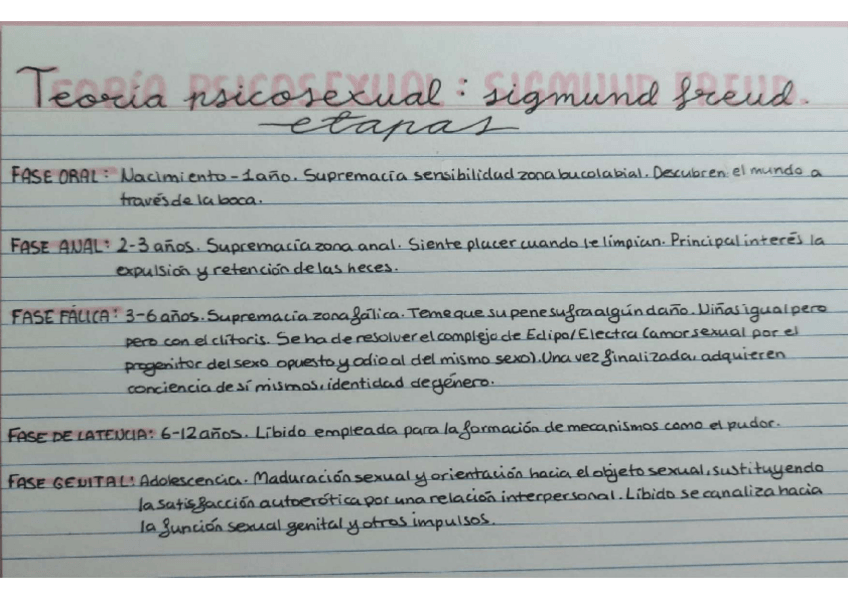 Teoría psicosexual: sigmund freud.
etapas
FASE ORAL: Nacimiento - 1 año. Supremacía sensibilidad zona bucolabial. Descubren el mundo a
través de la boca.
FASE ANAL: 2-3 años. Supremacía zona anal. Siente placer cuando le limpian. Principal interés la
expulsión y retención de las heces.
FASE FÁLICA: 3-6 años. Supremacía zona fálica. Teme que su pene sufra algún daño. Niñas igual pero
pero con el clítoris. Se ha de resolver el complejo de Edipo/Electra (amor sexual por el
progenitor del sexo opuesto y odio al del mismo sexo). Una vez finalizada, adquieren
conciencia de sí mismos, identidad de género.
FASE DE LATENCIA: 6-12 años. Líbido empleada para la formación de mecanismos como el pudor.
FASE GENITAL: Adolescencia. Maduración sexual y orientación hacia el objeto sexual, sustituyendo
la satisfacción autoerótica por una relación interpersonal. Líbido se canaliza hacia
la función sexual genital y otros impulsos.